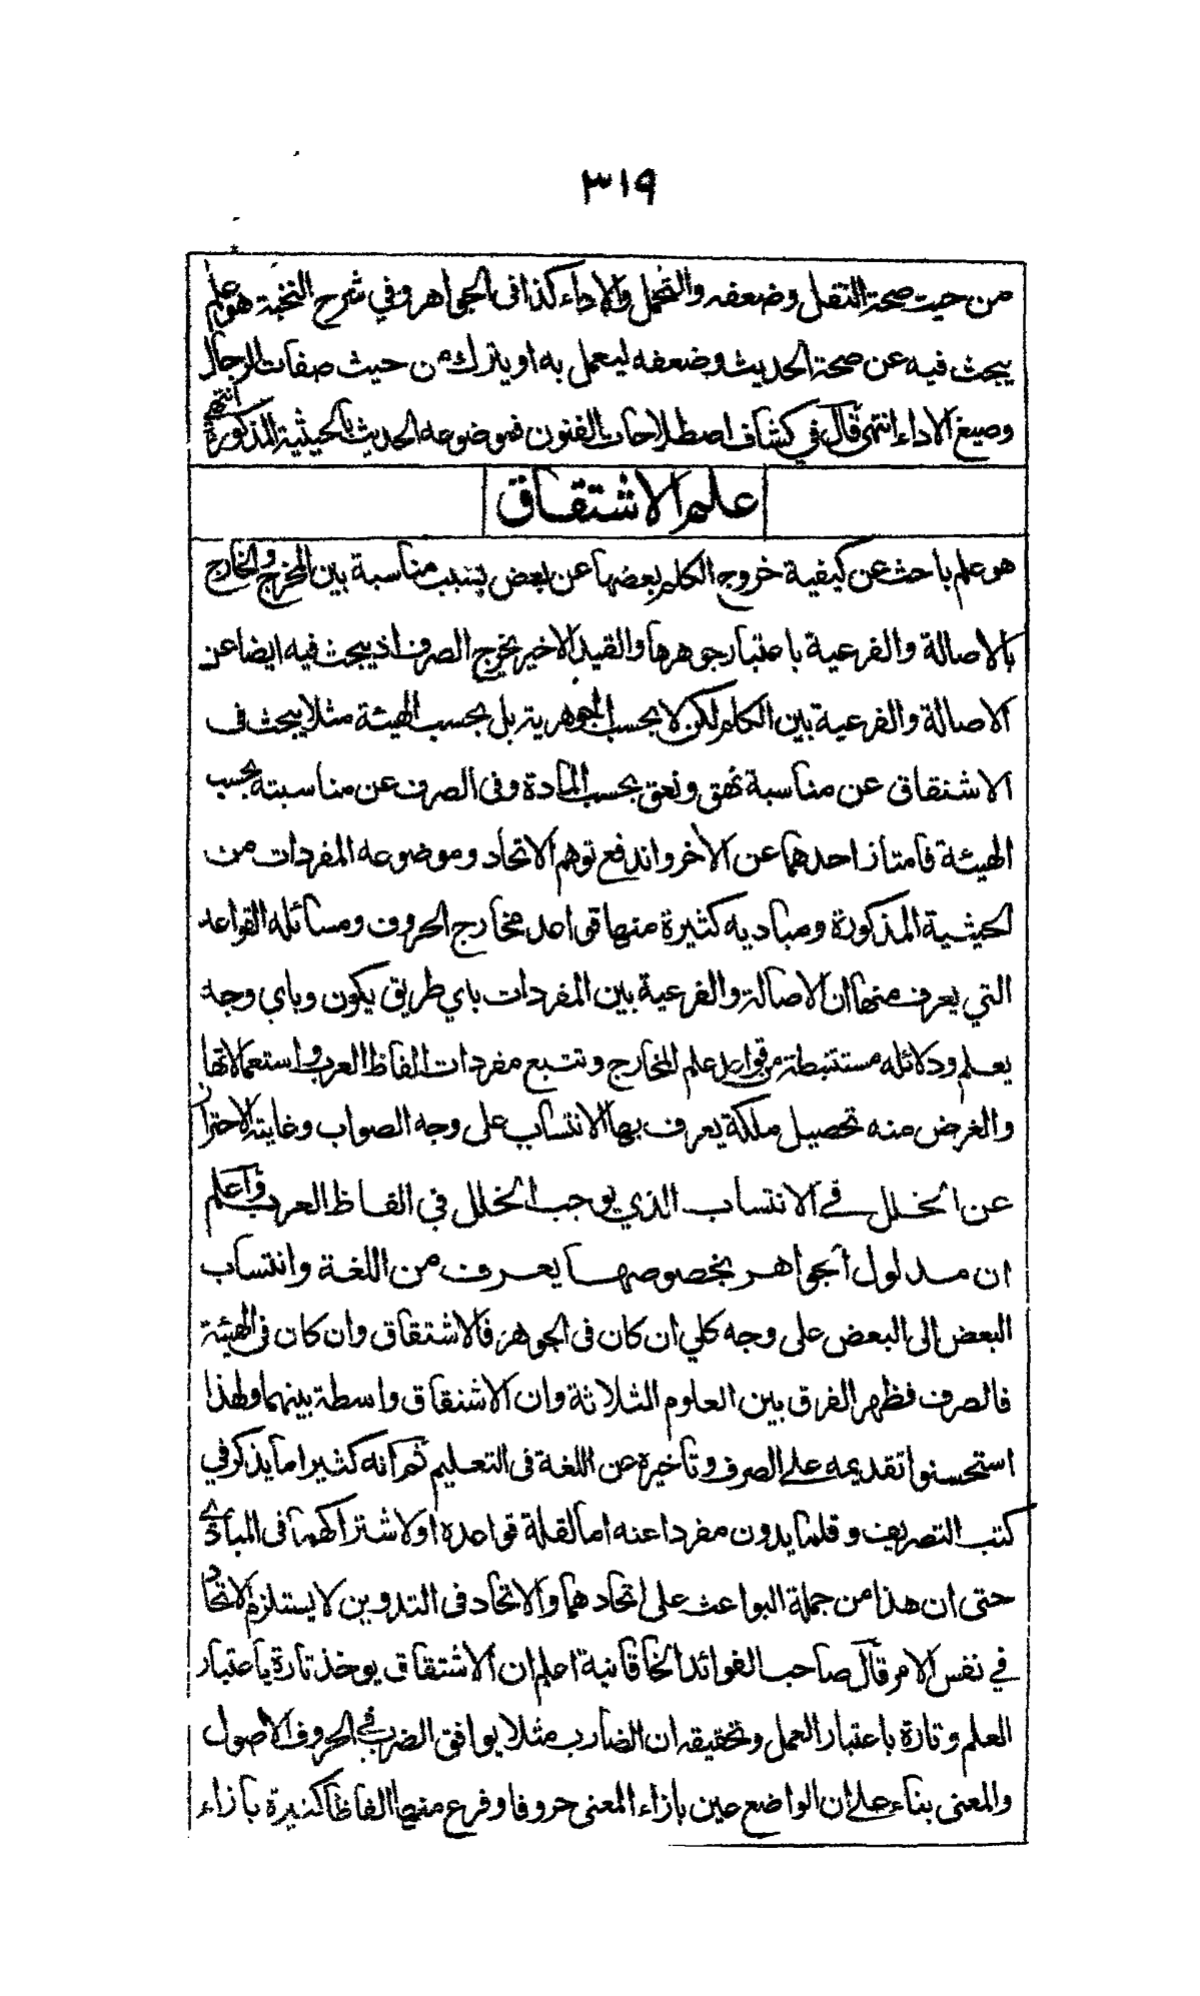 ٣١٩
من حيث صحة النقل وضعفه والتحمل والاداء كذا في الجواهر وفي شرح النخبة هو علم
يبحث فيه عن صحة الحديث وضعفه ليعمل به او يترك من حيث صفات الرجال
وصيغ الاداء انتهى قال في كشاف اصطلاحات الفنون فموضوعه الحديث بالحيثية المذكورة انتهى
علم الاشتقاق
هو علم باحث عن كيفية خروج الكلم بعضها عن بعض بسبب مناسبة بين المخرج والخارج
بالاصالة والفرعية باعتبار جوهرها والقيد الاخير يخرج الصرف اذ يبحث فيه ايضا عن
الاصالة والفرعية بين الكلم لكن لا بحسب الجوهرية بل بحسب الهيئة مثلا يبحث في
الاشتقاق عن مناسبة نهق ونعق بحسب المادة وفي الصرف عن مناسبته بحسب
الهيئة فامتاز احدهما عن الاخر واندفع توهم الاتحاد وموضوعه المفردات من
الحيثية المذكورة ومباديه كثيرة منها قواعد مخارج الحروف ومسائله القواعد
التي يعرف منها ان الاصالة والفرعية بين المفردات باي طريق يكون وباي وجه
يعلم ودلائله مستنبطة من قواعد علم المخارج وتتبع مفردات الفاظ العرب واستعمالاتها
والغرض منه تحصيل ملكة يعرف بها الانتساب على وجه الصواب وغايته الاحتراز
عن الخلل في الانتساب الذي يوجب الخلل في الفاظ العرب واعلم
ان مدلول الجواهر بخصوصها يعرف من اللغة وانتساب
البعض الى البعض على وجه كلي ان كان في الجوهر فالاشتقاق وان كان في الهيئة
فالصرف فظهر الفرق بين العلوم الثلاثة وان الاشتقاق واسطة بينهما ولهذا
استحسنوا تقديمه على الصرف وتاخيره عن اللغة في التعليم ثم انه كثيرا ما يذكر في
كتب التصريف وقلما يدون مفردا عنه اما لقلة قواعده او لاشتراكهما في المبادي
حتى ان هذا من جملة البواعث على اتحادهما والاتحاد في التدوين لا يستلزم الاتحاد
في نفس الامر قال صاحب الفوائد الخاقانية اعلم ان الاشتقاق يوخذ تارة باعتبار
العلم وتارة باعتبار العمل وتحقيقه ان الضارب مثلا يوافق الضرب في الحروف الاصول
والمعنى بناء على ان الواضع عين بازاء المعنى حروفا وفرع منها الفاظا كثيرة بازاء